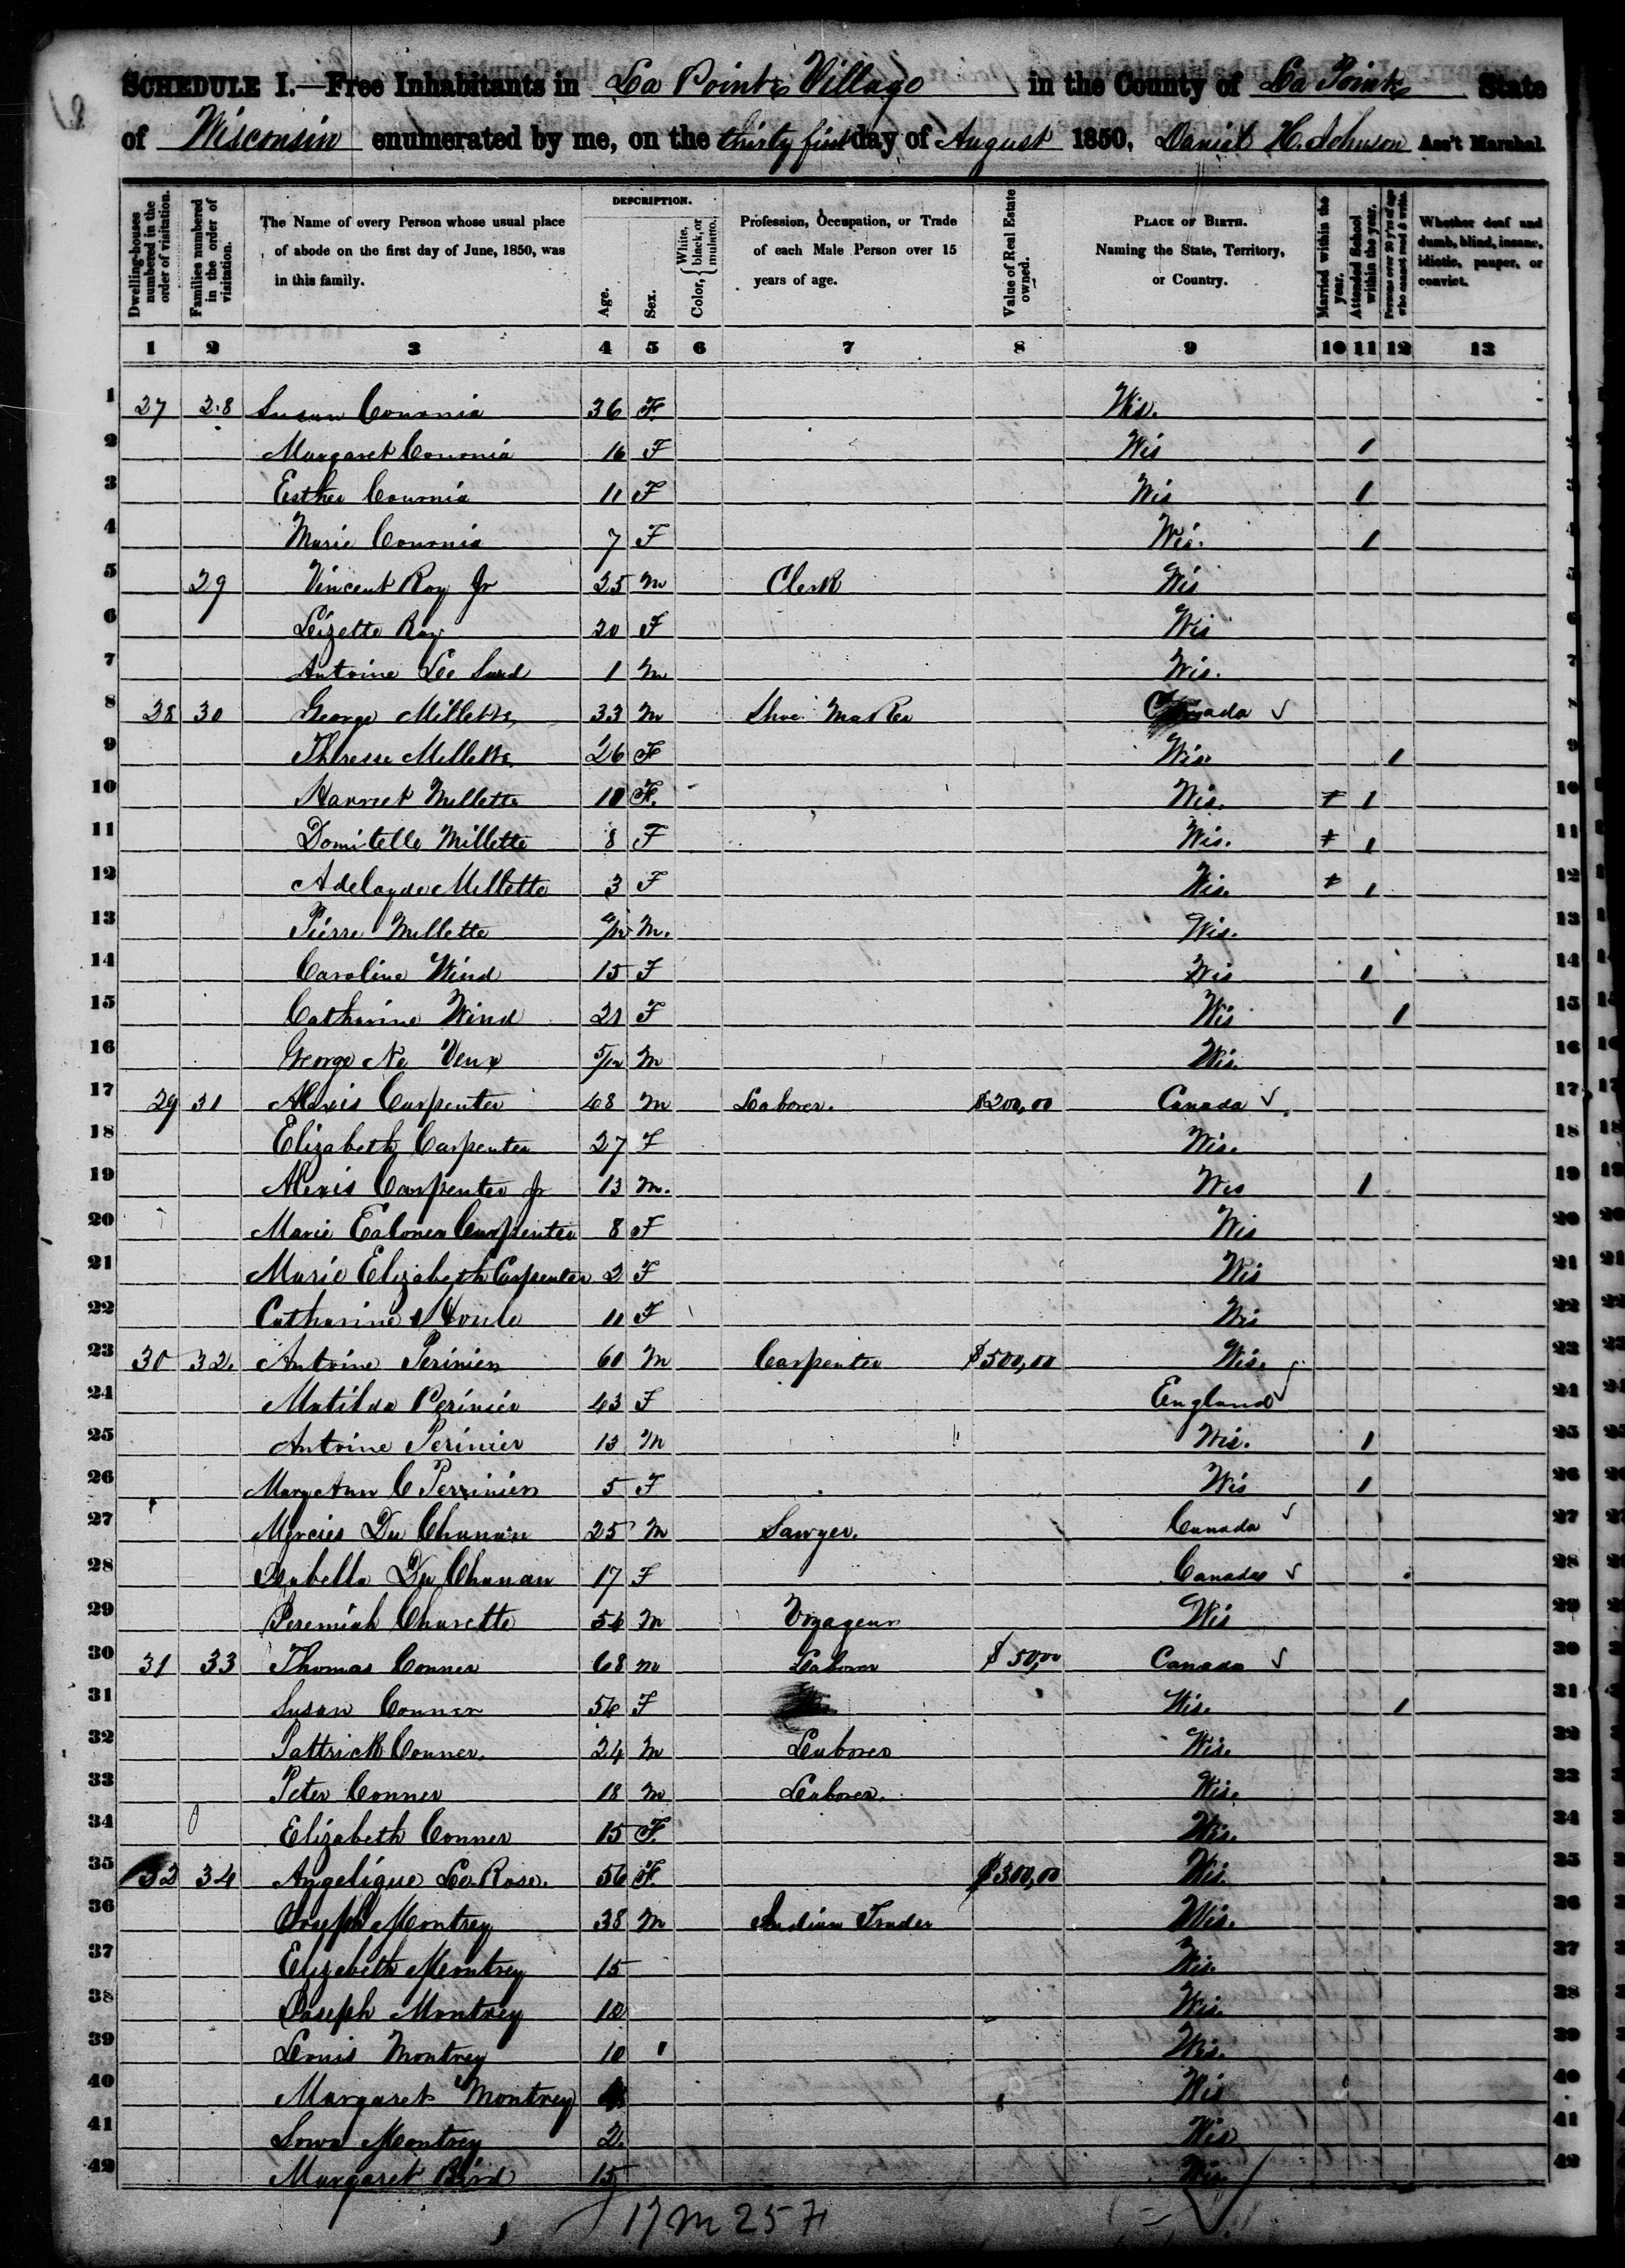 SCHEDULE I.—Free Inhabitants in La Pointe Village in the County of La Pointe State
of Wisconsin enumerated by me, on the thirty first day of August 1850. Daniel H. Johnson Ass't Marshal.
Dwelling-houses numbered in the order of visitation.
Families numbered in the order of visitation.
The Name of every Person whose usual place of abode on the first day of June, 1850, was in this family.
DESCRIPTION.
Age.
Sex.
Color, { White, black, or mulatto.
Profession, Occupation, or Trade of each Male Person over 15 years of age.
Value of Real Estate owned.
PLACE OF BIRTH. Naming the State, Territory, or Country.
Married within the year.
Attended School within the year.
Persons over 20 y'rs of age who cannot read & write.
Whether deaf and dumb, blind, insane, idiotic, pauper, or convict.
1 2 3 4 5 6 7 8 9 10 11 12 13
1 27 28 Susan Cononia 36 F. Wis. 1
2 Margaret Cononia 16 F Wis 1 2
3 Esther Cononia 11 F Wis 1 3
4 Marie Cononia 7 F Wis. 1 4
5 29 Vincent Roy Jr 25 M Clerk Wis 5
6 Lizette Roy 20 F Wis 6
7 Antoine Le 1 M Wis. 7
8 28 30 George Millette 33 M Shoe Maker Canada ✓ 8
9 Therese Millette 26 F Wis. 1 9
10 Harriet Millette 10 F. Wis. 1 10
11 Domitelle Millette 8 F Wis. 1 11
12 Adelayde Millette 3 F Wis. 1 12
13 Pierre Millette M. Wis. 13
14 Caroline Wind 15 F Wis 1 14
15 Catharine Wind 21 F Wis 1 15
16 George Ne Veux 5/12 M Wis. 16
17 29 31 Alexis Carpenter 48 M Laborer. $200,00 Canada ✓ 17
18 Elizabeth Carpenter 27 F Wis. 18
19 Alexis Carpenter Jr 13 M. Wis 1 19
20 Marie Carpenter 8 F Wis 20
21 Marie Elizabeth Carpenter 2 F Wis 21
22 Catharine Houle 11 F Wis 22
23 30 32. Antoine Perinier 60 M Carpenter $500,00 Wis. 23
24 Matilda Perinier 43 F England ✓ 24
25 Antoine Perinier 13 M Wis. 1 25
26 Mary Ann C Perrinier 5 F Wis 1 26
27 Du Chanan 25 M Sawyer. Canada ✓ 27
28 Isabella Du Chanan 17 F Canada ✓ 28
29 Jeremiah Charette 54 M Voyageur Wis 29
30 31 33 Thomas Conner 68 M Laborer $50,00 Canada ✓ 30
31 Susan Conner 54 F Wis. 1 31
32 Pattrick Conner. 24 M Laborer Wis. 32
33 Peter Conner 18 M Laborer. Wis. 33
34 Elizabeth Conner 15 F. Wis. 34
35 32 34 Angelique La Rose. 56 F. $300,00 Wis. 35
36 Joseph Montrey 38 M Indian Trader Wis. 36
37 Elizabeth Montrey 15 Wis. 37
38 Joseph Montrey 12 Wis. 38
39 Louis Montrey 10 Wis. 39
40 Margaret Montrey Wis 40
41 Montrey 2. Wis 41
42 Margaret Bird 15 Wis. 42
17 M 25 F